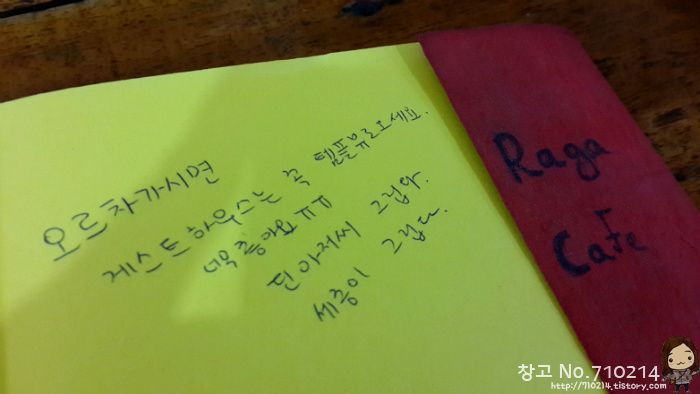 오르차 가시면
게스트하우스는 꼭 템플뷰로 오세요.
너무 좋아요 ㅠㅠ
딘아저씨 그립다.
세종이 그립다.
Raga
Cafe
창고 No.710214
http://710214.tistory.com/